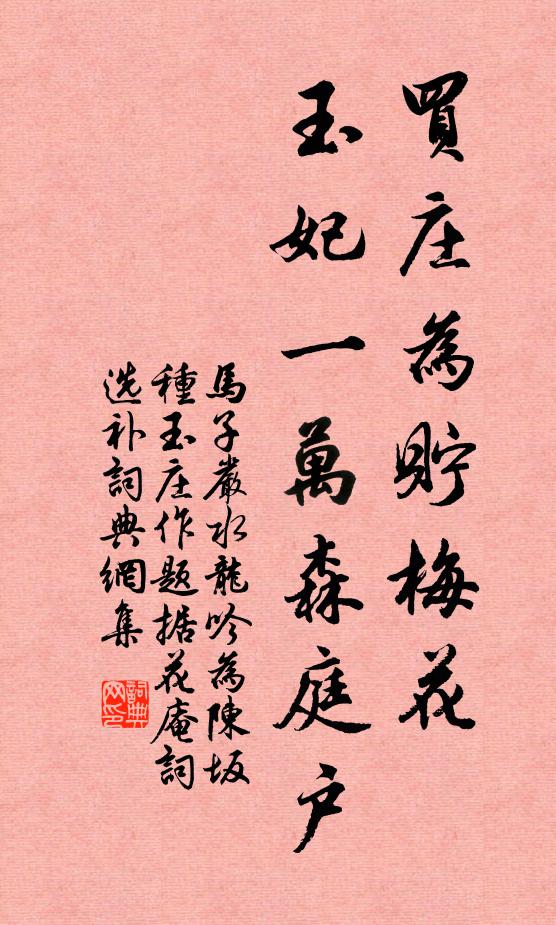 買庄為貯梅花
玉妃一萬森庭户
馬子嚴水龍吟為陳坂
種玉庄作題据花庵詞
选补詞典網集
詞典网印